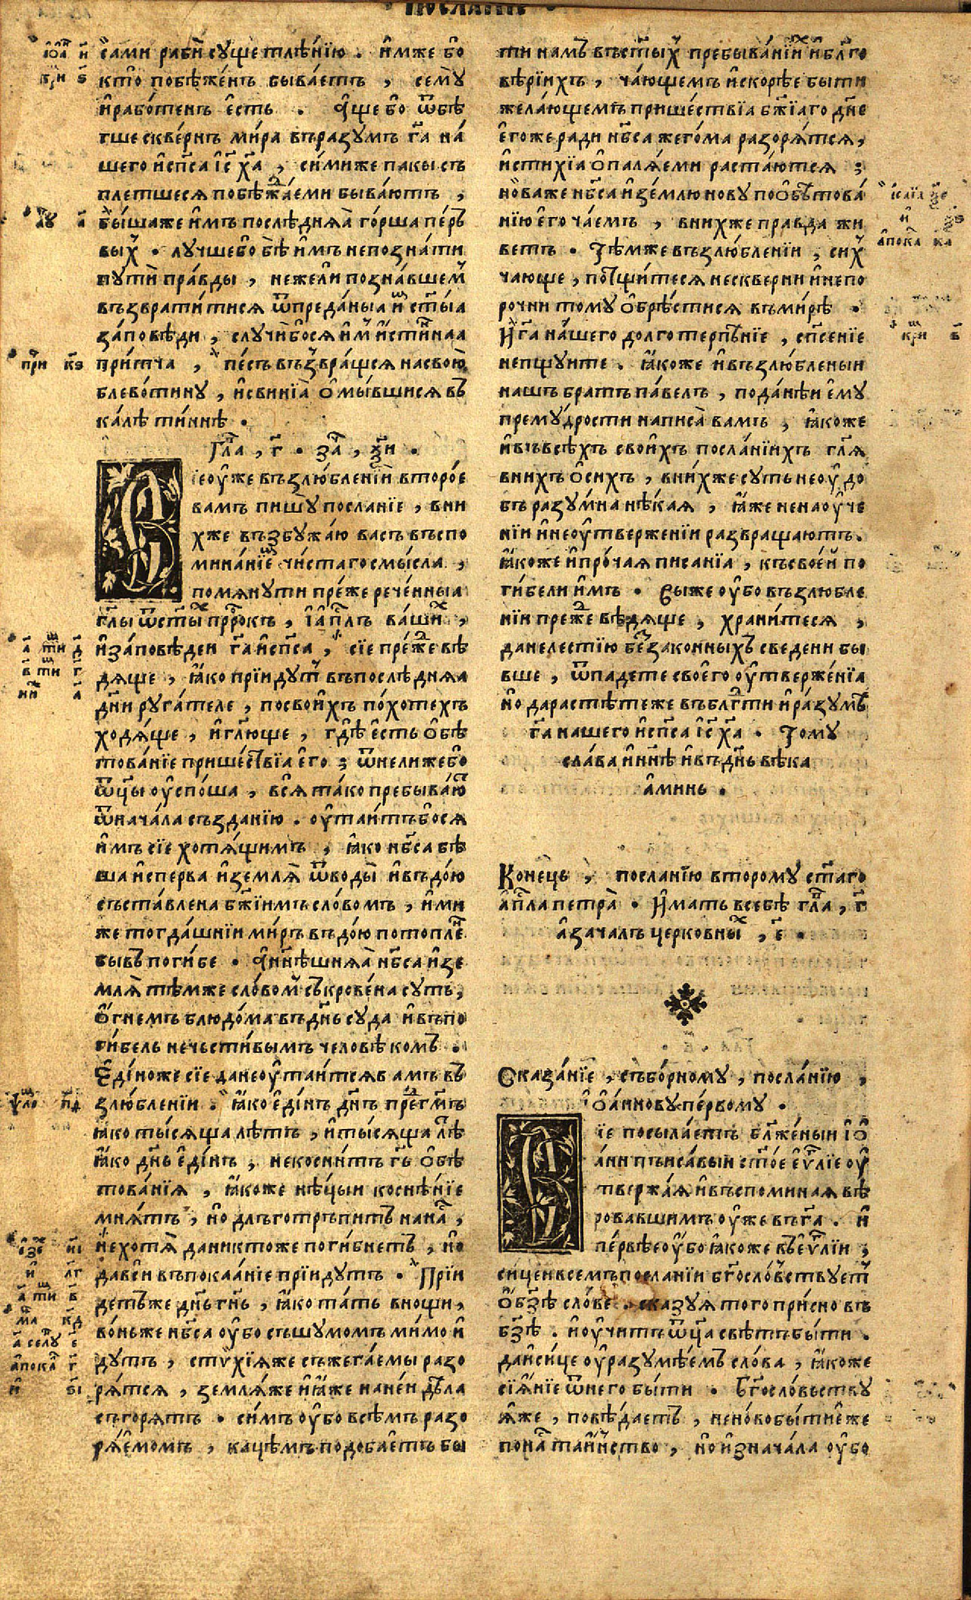 послание
сами раби суще тлѣнїю . имже бо
кто побѣженъ бываетъ , семꙋ
и работенъ есть . Аще бо ѿбѣ
гше сквернъ мира въ разꙋмъ г҃а на
шего и сп҃са іс҃ х҃а , симиже пакы съ
плетшеся побѣжⷣаеми бываютъ ,
бышаже имъ послѣдняя горша перъ
выⷯ . лꙋчше бо бѣ имъ не познати
пꙋти правды , нежели познавшеⷨ
възвратитися ѿ преданыа иⷨ ст҃ыа
заповѣди , слꙋчи бося иⷨ истиⷩнаа
притча , песъ възвращся на свою
блевотинꙋ , и свинїа омывшися въ
калѣ тиннѣ .
Глⷡа , г҃ . заⷱ , ѯ҃и .
Вїе ꙋже възлюбленїи второе
вамъ пишꙋ посланїе , в ни
хже възбꙋжаю васъ въспо
минанїеⷨ чистаго смысла ,
помянꙋти преже реченныа
гл҃ы ѿ ст҃ыⷯ прⷪ҇ркъ , и апⷭ҇лъ вашиⷯ ,
и заповѣдеи г҃а и сп҃са , сїе преⷤже вѣ
дяще , яко прїидꙋтъ въ послѣдняа
дн҃и рꙋгателе , по своихъ похотехъ
ходяще , и гл҃юще , гдѣ есть обѣ
тованїе пришествїа его ; ѿнелиже бо
ѿц҃ы ꙋспоша , вся тако пребываюⷮ
ѿ начала създанїю . ꙋтаитъ бося
имъ сїе хотящимъ , яко нб҃са бѣ
ша исперва и земля ѿ воды и водою
съставлена бж҃їимъ словомъ , ими
же тогдашнїи миръ водою потопле
бывъ погибе . А нн҃ѣшняя нб҃са и зе
мля тѣмже словоⷨ съкровена сꙋть ,
огнемъ блюдома въ дн҃ь сꙋда и въ по
гибель нечестивымъ человѣкомъ .
Едіноже сїе да не ꙋтаится в амъ въ
злюбленїи . яко едінъ дн҃ь преⷣ г҃мъ
яко тысяща лѣтъ , и тысяща лѣⷮ
яко дн҃ь едінъ ; не коснитъ г҃ь обѣ
тованїя , якоже нѣцыи коснѣнїе
мнятъ , но дльготръпитъ на наⷭ ,
не хотя да никтоже погибнетъ , но
да вси въ покаанїе прїидꙋтъ . Прїи
детъ же дн҃ь гн҃ь , яко тать в нощи ,
воньже нб҃са ꙋбо съ шꙋмомъ мимо и
дꙋтъ , стѵхїяже съжегаемы разо
рятся , земляже и яже на неи дѣла
сгорятъ . симъ ꙋбо всѣмъ разо
ряемомъ , кацѣмъ подобаетъ бы
ти намъ въ ст҃ыⷯ пребыванїиⷯ и бл҃го
вѣрїихъ , чающемъ и скорѣе быти
желающемъ пришествїа бж҃їаго дн҃е
егоже ради нб҃са жегома разорятся ,
и стихїа опаляеми растаются ;
новаже нб҃са и землю новꙋ по обѣтова
нїю его чаемъ , в нихже правда жи
ветъ . Тѣмже възлюбленїи , сиⷯ
чающе , потщитеся нескверни и непо
рочни томꙋ обрѣстися въ мирѣ .
И г҃а нашего долготерпѣнїе , сп҃сенїе
непщꙋите . якоже и възлюбленыи
нашъ братъ павелъ , по данѣи емꙋ
премꙋдрости написа вамъ , якоже
и въ всѣхъ своихъ посланїихъ гл҃я
в нихъ о сихъ , в нихже сꙋть не ꙋдо
бъ разꙋмна нѣкая , яже не наꙋче
нїи и не ꙋтверженїи развращаютъ .
якоже и прочая писанїа , къ своеи по
гибели имъ . Выже ꙋбо възлюбле
нїи преже вѣдяще , хранитеся ,
да не лестїю беззаконныхъ сведени бы
вше , ѿпадете своего ꙋтверженїа
но да растѣтеже въ блг҃ти и разꙋмъ
г҃а нашего и сп҃са іс҃ х҃а . Томꙋ
слава и нн҃ѣ и въ дн҃ь вѣка
аминь .
Конець , посланїю второмꙋ ст҃аго
апⷭ҇ла петра . Имать в себѣ глⷡа , г҃
а зачалъ церковныⷯ , е҃ .
Сказанїе , съборномꙋ , посланїю ,
Іоанновꙋ первомꙋ .
Вїе посылаетъ блаженыи іѡ
аннъ писавыи ст҃ое еѵⷢ҇лїе ꙋ
твержая и въспоминая вѣ
ровавшимъ ꙋже въ г҃а . и
первѣе ꙋбо якоже въ еѵⷢ҇лїи ;
сице и в семъ посланїи бг҃ословствꙋетъ
о бз҃ѣ словѣ . сказꙋя того присно въ
бз҃ѣ . и ꙋчитъ ѿц҃а свѣтъ быти .
да и сице ꙋразꙋмѣемъ слова , якоже
сїянїе ѿ него быти . Бг҃ословьствꙋ
яже , повѣдаетъ , не ново быти еже
по наⷭ таинство , но изначала ꙋбо